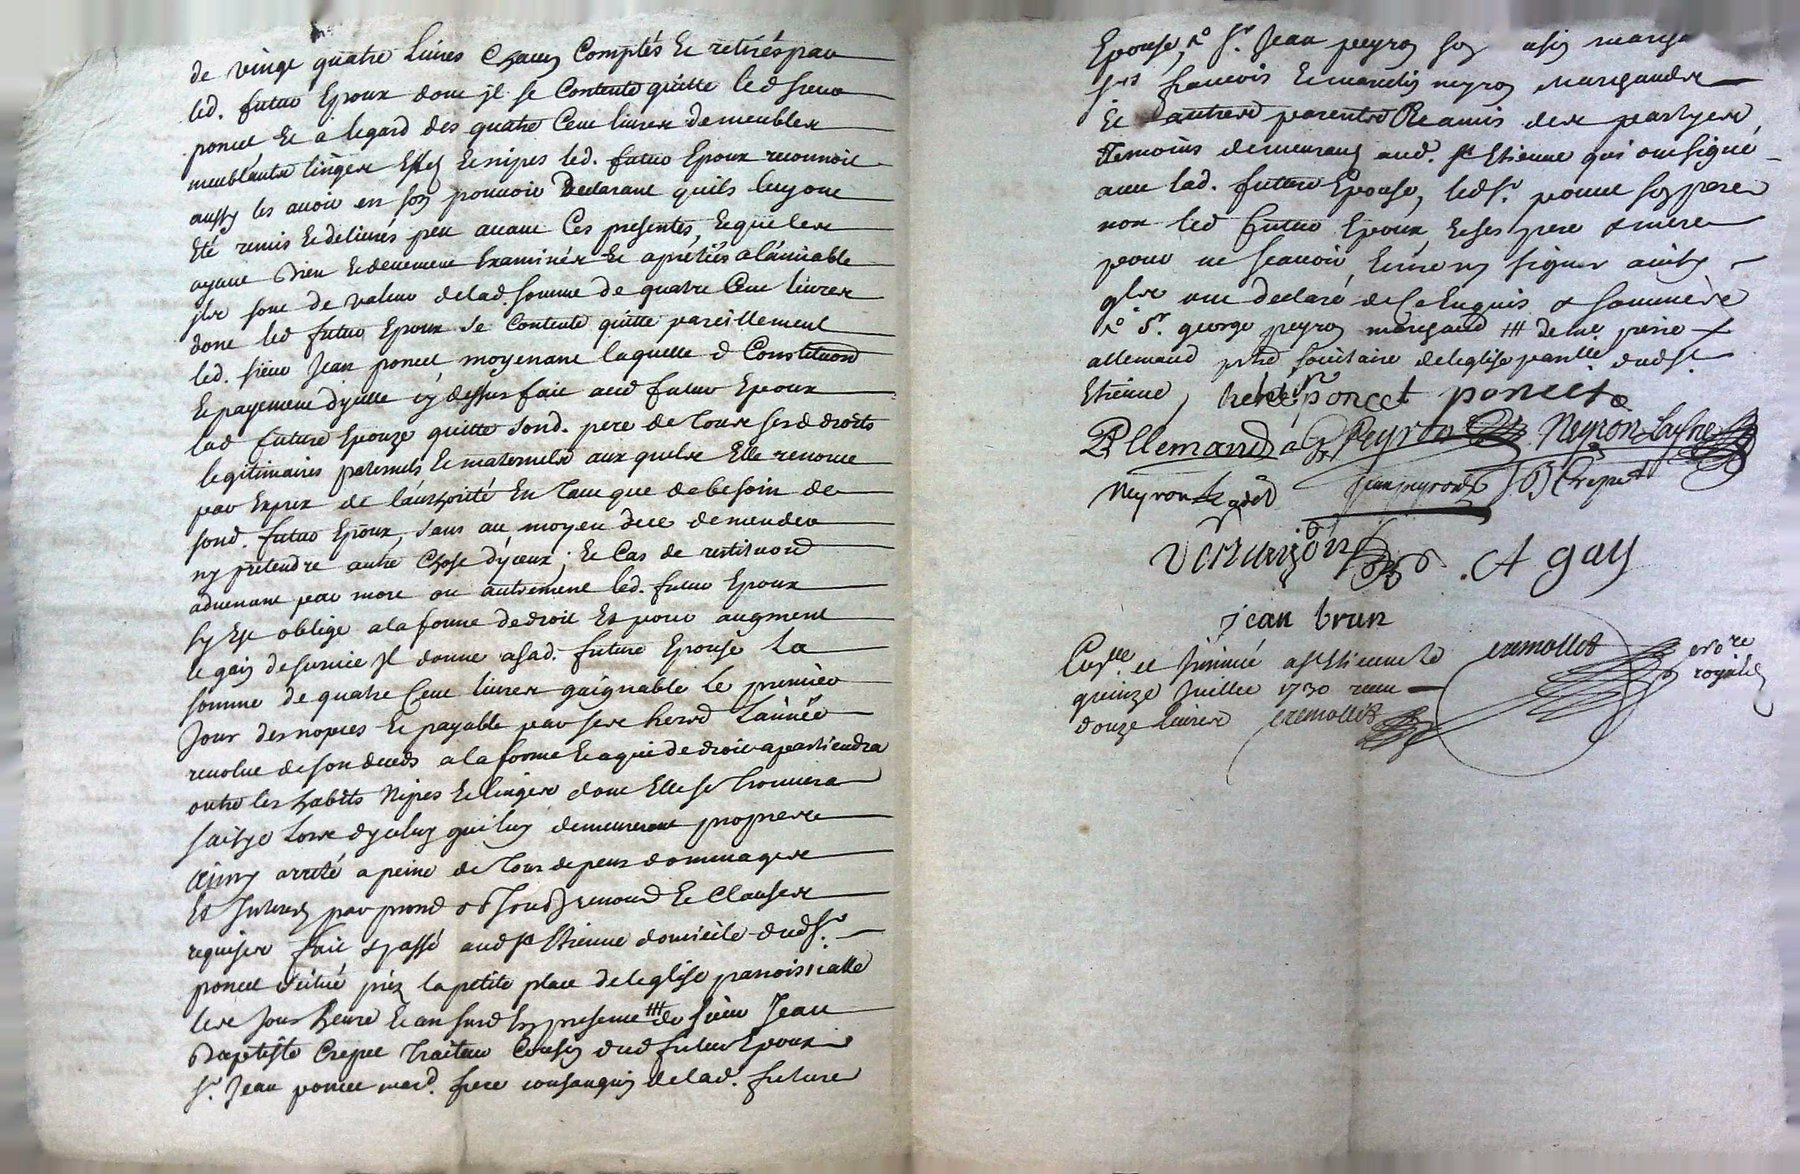 de vingt quatre Livres Chacun Comptés et retirés par
led. futur Epoux dont jl se Contente quitte led sieur
poncet Et a legard des quatre Cent livres de meubles
meublants linges Effets Et nipes led. futur Epoux reconnoit
aussy les avoir en son pouvoir Declarant quils luy ont
Eté remis Et delivrés peu avant Ces presentes, Lesquelles
ayant bien Et deuement Examinés Et apretiés a lamiable
jls sont de valeur de lad. somme de quatre Cent livres
dont led futur Epoux se Contente quitte pareillement
led. sieur Jean poncet, moyenant laquelle d Constituon
Et payement dycelle cy dessus fait aud futur Epoux
lad future Epouze quitte sond. pere de Tous sesd droits
legitimaires paternels Et maternels aux quels Elle renonce
par Exprez de lauthorité En Tant que de besoin de
sond. futur Epoux, sans au moyen dece demander
ny pretendre autre Chose dyceux; Et Cas de restituon
advenant par mort ou autrement led. futur Epoux
sy Est obligé a la forme de droit Et pour augment
et gain de survie jl donne a sad. future Epouse La
somme de quatre Cent livres gaignable le premier
Jour des nopces Et payable par ses heirs Lannée
revolue de son deceds a la forme Et a qui de droit apartiendra
outre les habits Nipes Et linges dont Elle se Trouvera
saisye Lors dyceluy qui luy demeureront propres
Ainsy arreté a peine de Tous depens dommages
Et Interets par promd obSonsd renond Et Clauses
requises fait & passé aud st Etienne domicile dud sr.
poncet situé prez la petite place de leglise paroissialle
les Jour heure Et an susd En presence ⧻ de sieur Jean
Baptiste Crepet Traiteur Cousin dud futur Epoux
sr. Jean poncet mard. frere consanguin de lad. future
Epouse, & sr. Jean peyron son marchd
srs francois Et neyron Marchands
Et autres parents Et amis des partyes,
Temoins demeurans aud. st Etienne qui ont signé
avec lad. future Epouse, led sr. poncet son pere
non led futur Epoux Et ses pere & mere
pour ne scavoir Ecrire ny signer ainsy
qls ont declaré de Ce Enquis & sommés
& sr. george peyron marchand ⧻ de me
allemand ptre societaire de leglise parlle dudt.
Etienne, poncet poncet
Allemand G Peyron Neyron Lasne
Neyron Le jean peyron JB Crepet
A gay
jean brun
Conlle et Insinué a st Etienne le
quinze Juillet 1730 receu
douze Livres
royal